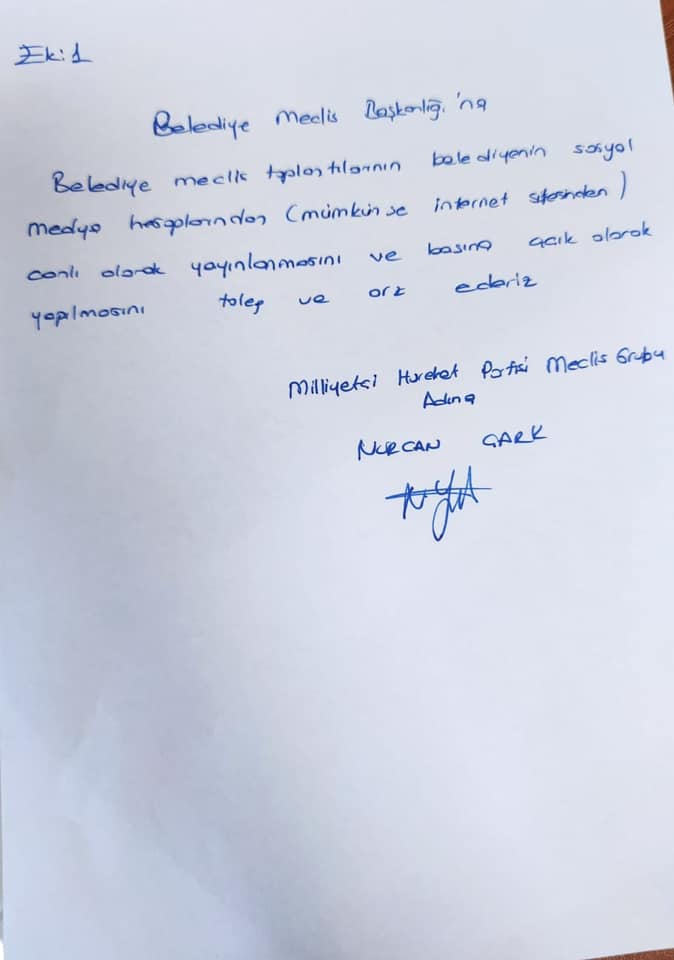 Ek:1
Belediye Meclis Başkanlığı'na
Belediye meclis toplantılarının belediyenin sosyal
medya hesaplarından (mümkünse internet sitesinden)
canlı olarak yayınlanmasını ve basına açık olarak
yapılmasını talep ve arz ederiz
Milliyetçi Hareket Partisi Meclis Grubu
Adına
NURCAN ÇARK